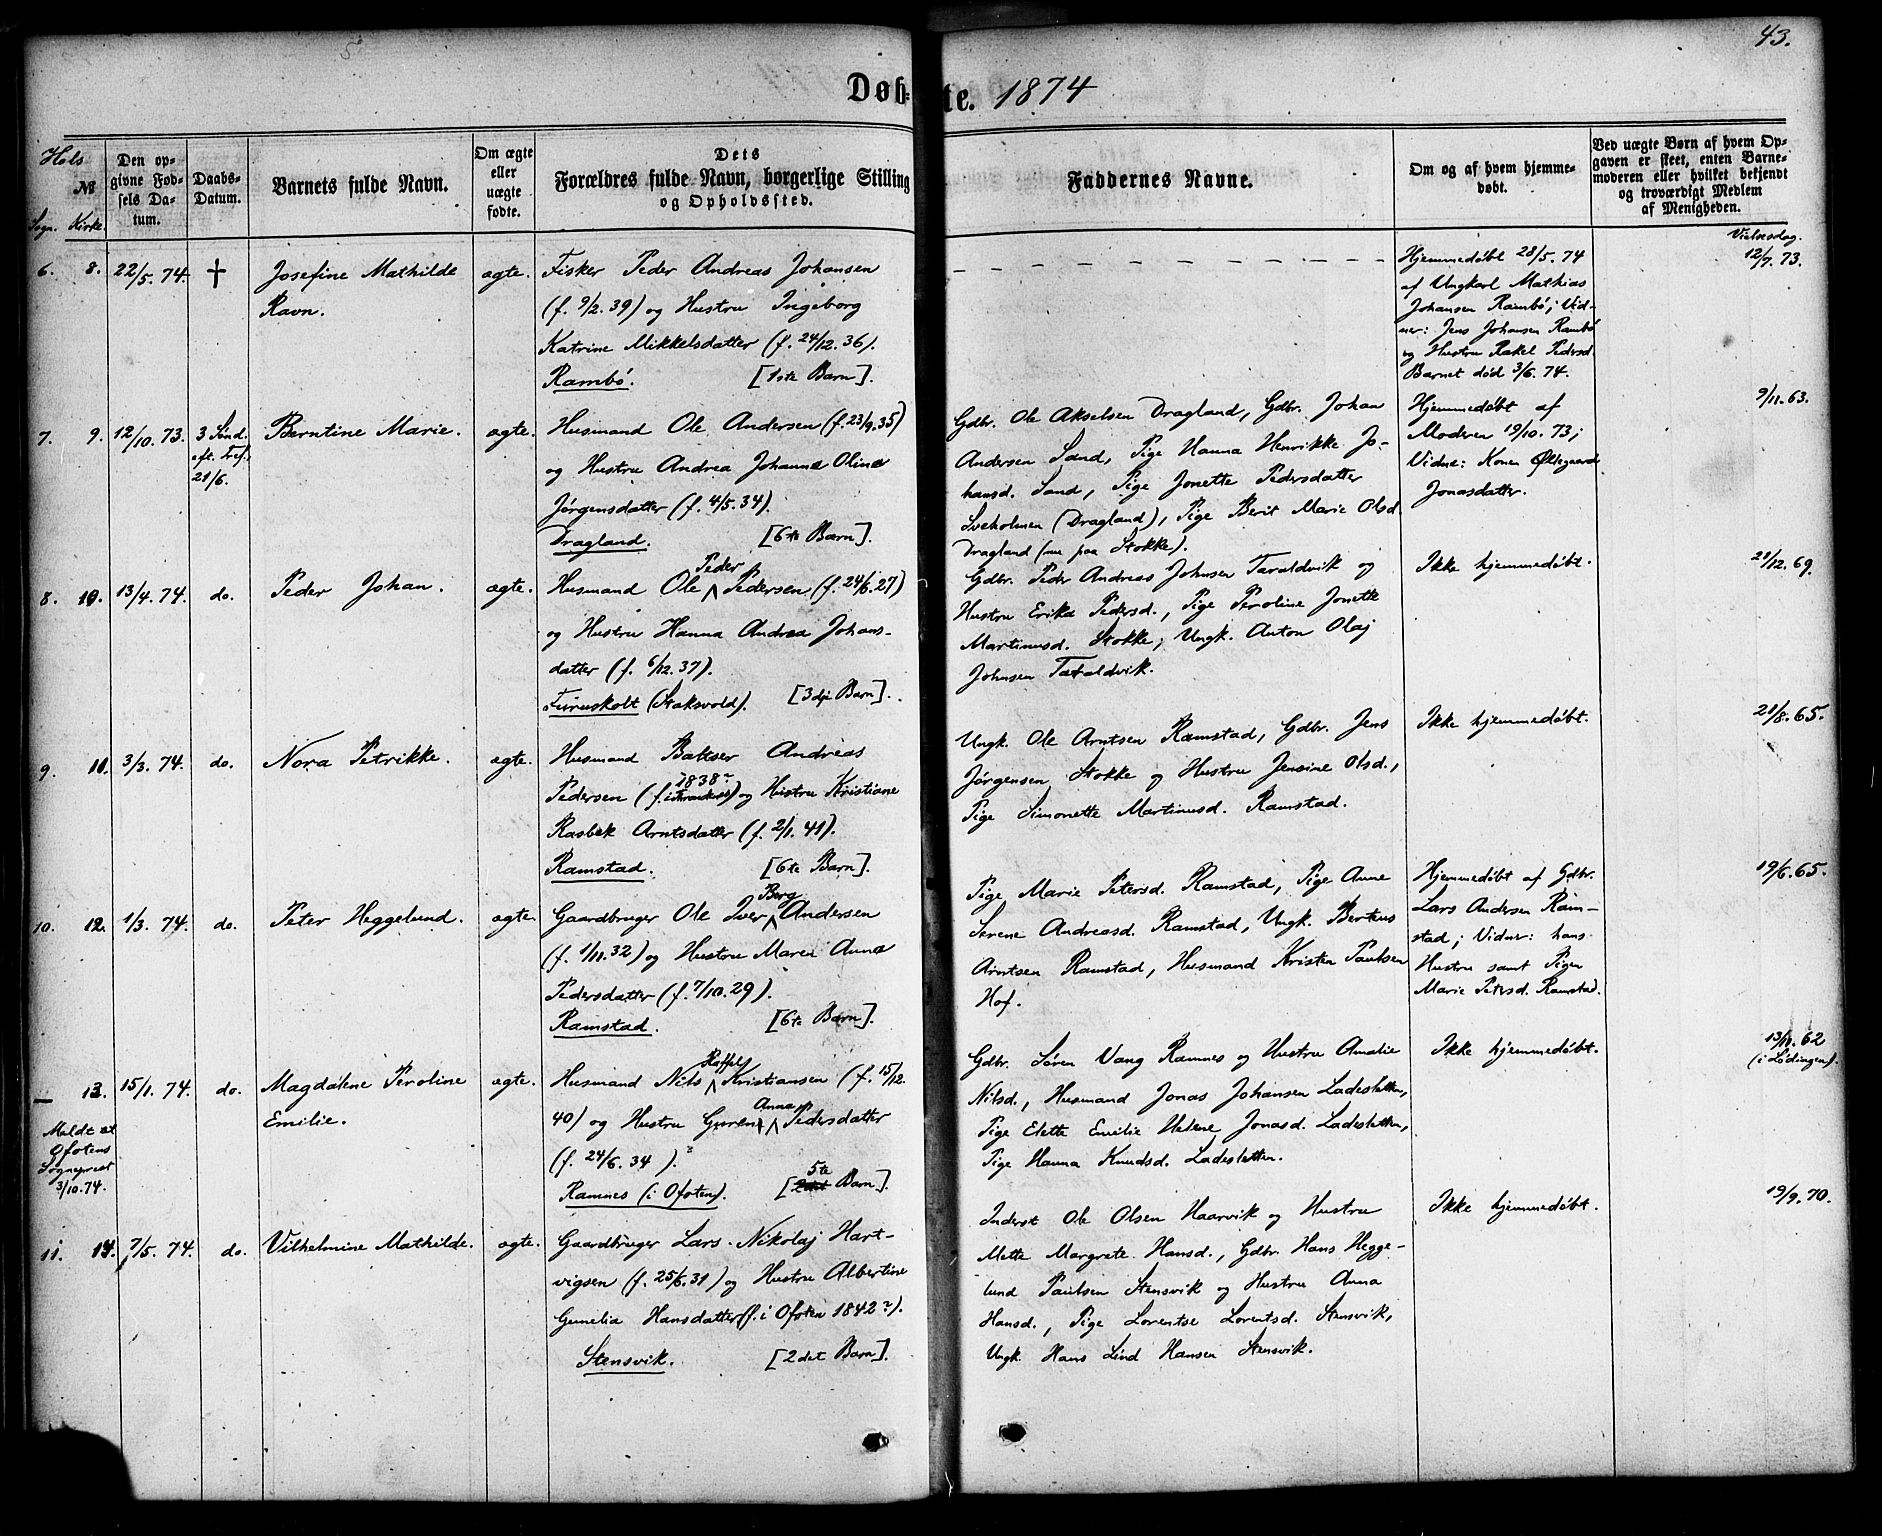 43.
Døb- te. 1874
Hols Sogn.
№ Kirke.
Den opgivne Fødsels Datum.
Daabs-Datum.
Barnets fulde Navn.
Om ægte eller uægte fødte.
Dets Forældres fulde Navn, borgerlige Stilling og Opholdssted.
Faddernes Navne.
Om og af hvem hjemmedøbt.
Ved uægte Børn af hvem Opgaven er skeet, enten Barnemoderen eller hvilket bekjendt og troværdigt Medlem af Menigheden.
Vielsesdag.
6. 8. 22/5. 74. † Josefine Mathilde
Ravn.
ægte.
Fisker Peder Andreas Johansen
(f. 9/2. 39) og Hustru Ingeborg
Katrine Mikkelsdatter (f. 24/12. 36).
Rambø. [1ste Barn].
Hjemmedøbt 28/5. 74
af Ungkarl Mathias
Johansen Rambø; Vid-
ner: Jens Johansen Rambø
og Hustru Rakel Pedersd.
Barnet død 3/6. 74.
12/7. 73.
7. 9. 12/10. 73. 3 Sønd.
eft. Tref.
21/6.
Berntine Marie. ægte.
Husmand Ole Andersen (f. 23/9. 35)
og Hustru Andrea Johanna Olina
Jørgensdatter (f. 4/5. 34).
Dragland. [6te Barn].
Gdbr. Ole Akselsen Dragland, Gdbr. Johan
Andersen Sand, Pige Hanna Henrikke Jo-
hansd. Sand, Pige Jonette Pedersdatter
Sveholmen (Dragland), Pige Berit Marie Olsd.
Dragland (nu paa Stokke).
Hjemmedøbt af
Moderen 19/10. 73;
Vidne: Konen Øllegaard
Jonasdatter.
9/11. 63.
8. 10. 13/4. 74. do. Peder Johan. ægte.
Husmand Ole Peder Pedersen (f. 24/6. 27)
og Hustru Hanna Andrea Johans-
datter (f. 6/12. 37).
Furuskolt (Staksvold). [3die Barn].
Gdbr. Peder Andreas Johnsen Taraldvik og
Hustru Erika Pedersd., Pige Peroline Jonette
Martinusd. Stokke, Ungk. Anton Olaj
Johnsen Taraldvik.
Ikke hjemmedøbt.
21/12. 69.
9. 11. 3/3. 74. do. Nora Petrikke. ægte.
Husmand Baltser Andreas
Pedersen (f. i 1838?) og Hustru Kristiane
Rasbek Arntsdatter (f. 2/1. 41).
Ramstad. [6te Barn].
Ungk. Ole Arntsen Ramstad, Gdbr. Jens
Jørgensen Stokke og Hustru Jensine Olsd.,
Pige Simonette Martinusd. Ramstad.
Ikke hjemmedøbt.
21/8. 65.
10. 12. 1/3. 74. do. Peter Heggelund. ægte.
Gaardbruger Ole Iver Berg Andersen
(f. 1/11. 32) og Hustru Maren Anna
Pedersdatter (f. 7/10. 29).
Ramstad. [6te Barn].
Pige Marie Petersd. Ramstad, Pige Anne
Serene Andreasd. Ramstad, Ungk. Berteus
Arntsen Ramstad, Husmand Kristen Paulsen
Hof.
Hjemmedøbt af Gdbr.
Lars Andersen Ram-
stad; Vidner: hans
Hustru samt Pigen
Marie Petersd. Ramstad.
19/6. 65.
— 13. 15/1. 74. do. Magdalene Peroline
Emilie.
ægte.
Meldt at
Ofotens
Sogneprest
3/10. 74.
Husmand Nils Kristiansen (f. 15/12.
40) og Hustru Guren Anna Pedersdatter
(f. 24/6. 34 ).?
Ramnes (i Ofoten). [5te Barn].
Gdbr. Søren Vang Ramnes og Hustru Amalie
Nilsd., Husmand Jonas Johansen Ladesletten,
Pige Elette Emilie Helene Jonasd. Ladesletten,
Pige Hanna Knudsd. Ladesletten.
Ikke hjemmedøbt.
13/11. 62
(i Lødingen).
11. 14. 7/5. 74. do. Vilhelmine Mathilde. ægte.
Gaardbruger Lars Nikolaj Hart-
vigsen (f. 25/6. 31) og Hustru Albertine
Gunelia Hansdatter (f. i Ofoten 1842?).
Stensvik. [2det Barn].
Inderst Ole Olsen Haarvik og Hustru
Mette Margrete Hansd., Gdbr. Hans Hegge-
lund Paulsen Stensvik og Hustru Anna
Hansd., Pige Lorentse Lorentsd. Stensvik,
Ungk. Hans Lind Hansen Stensvik.
Ikke hjemmedøbt.
19/9. 70.